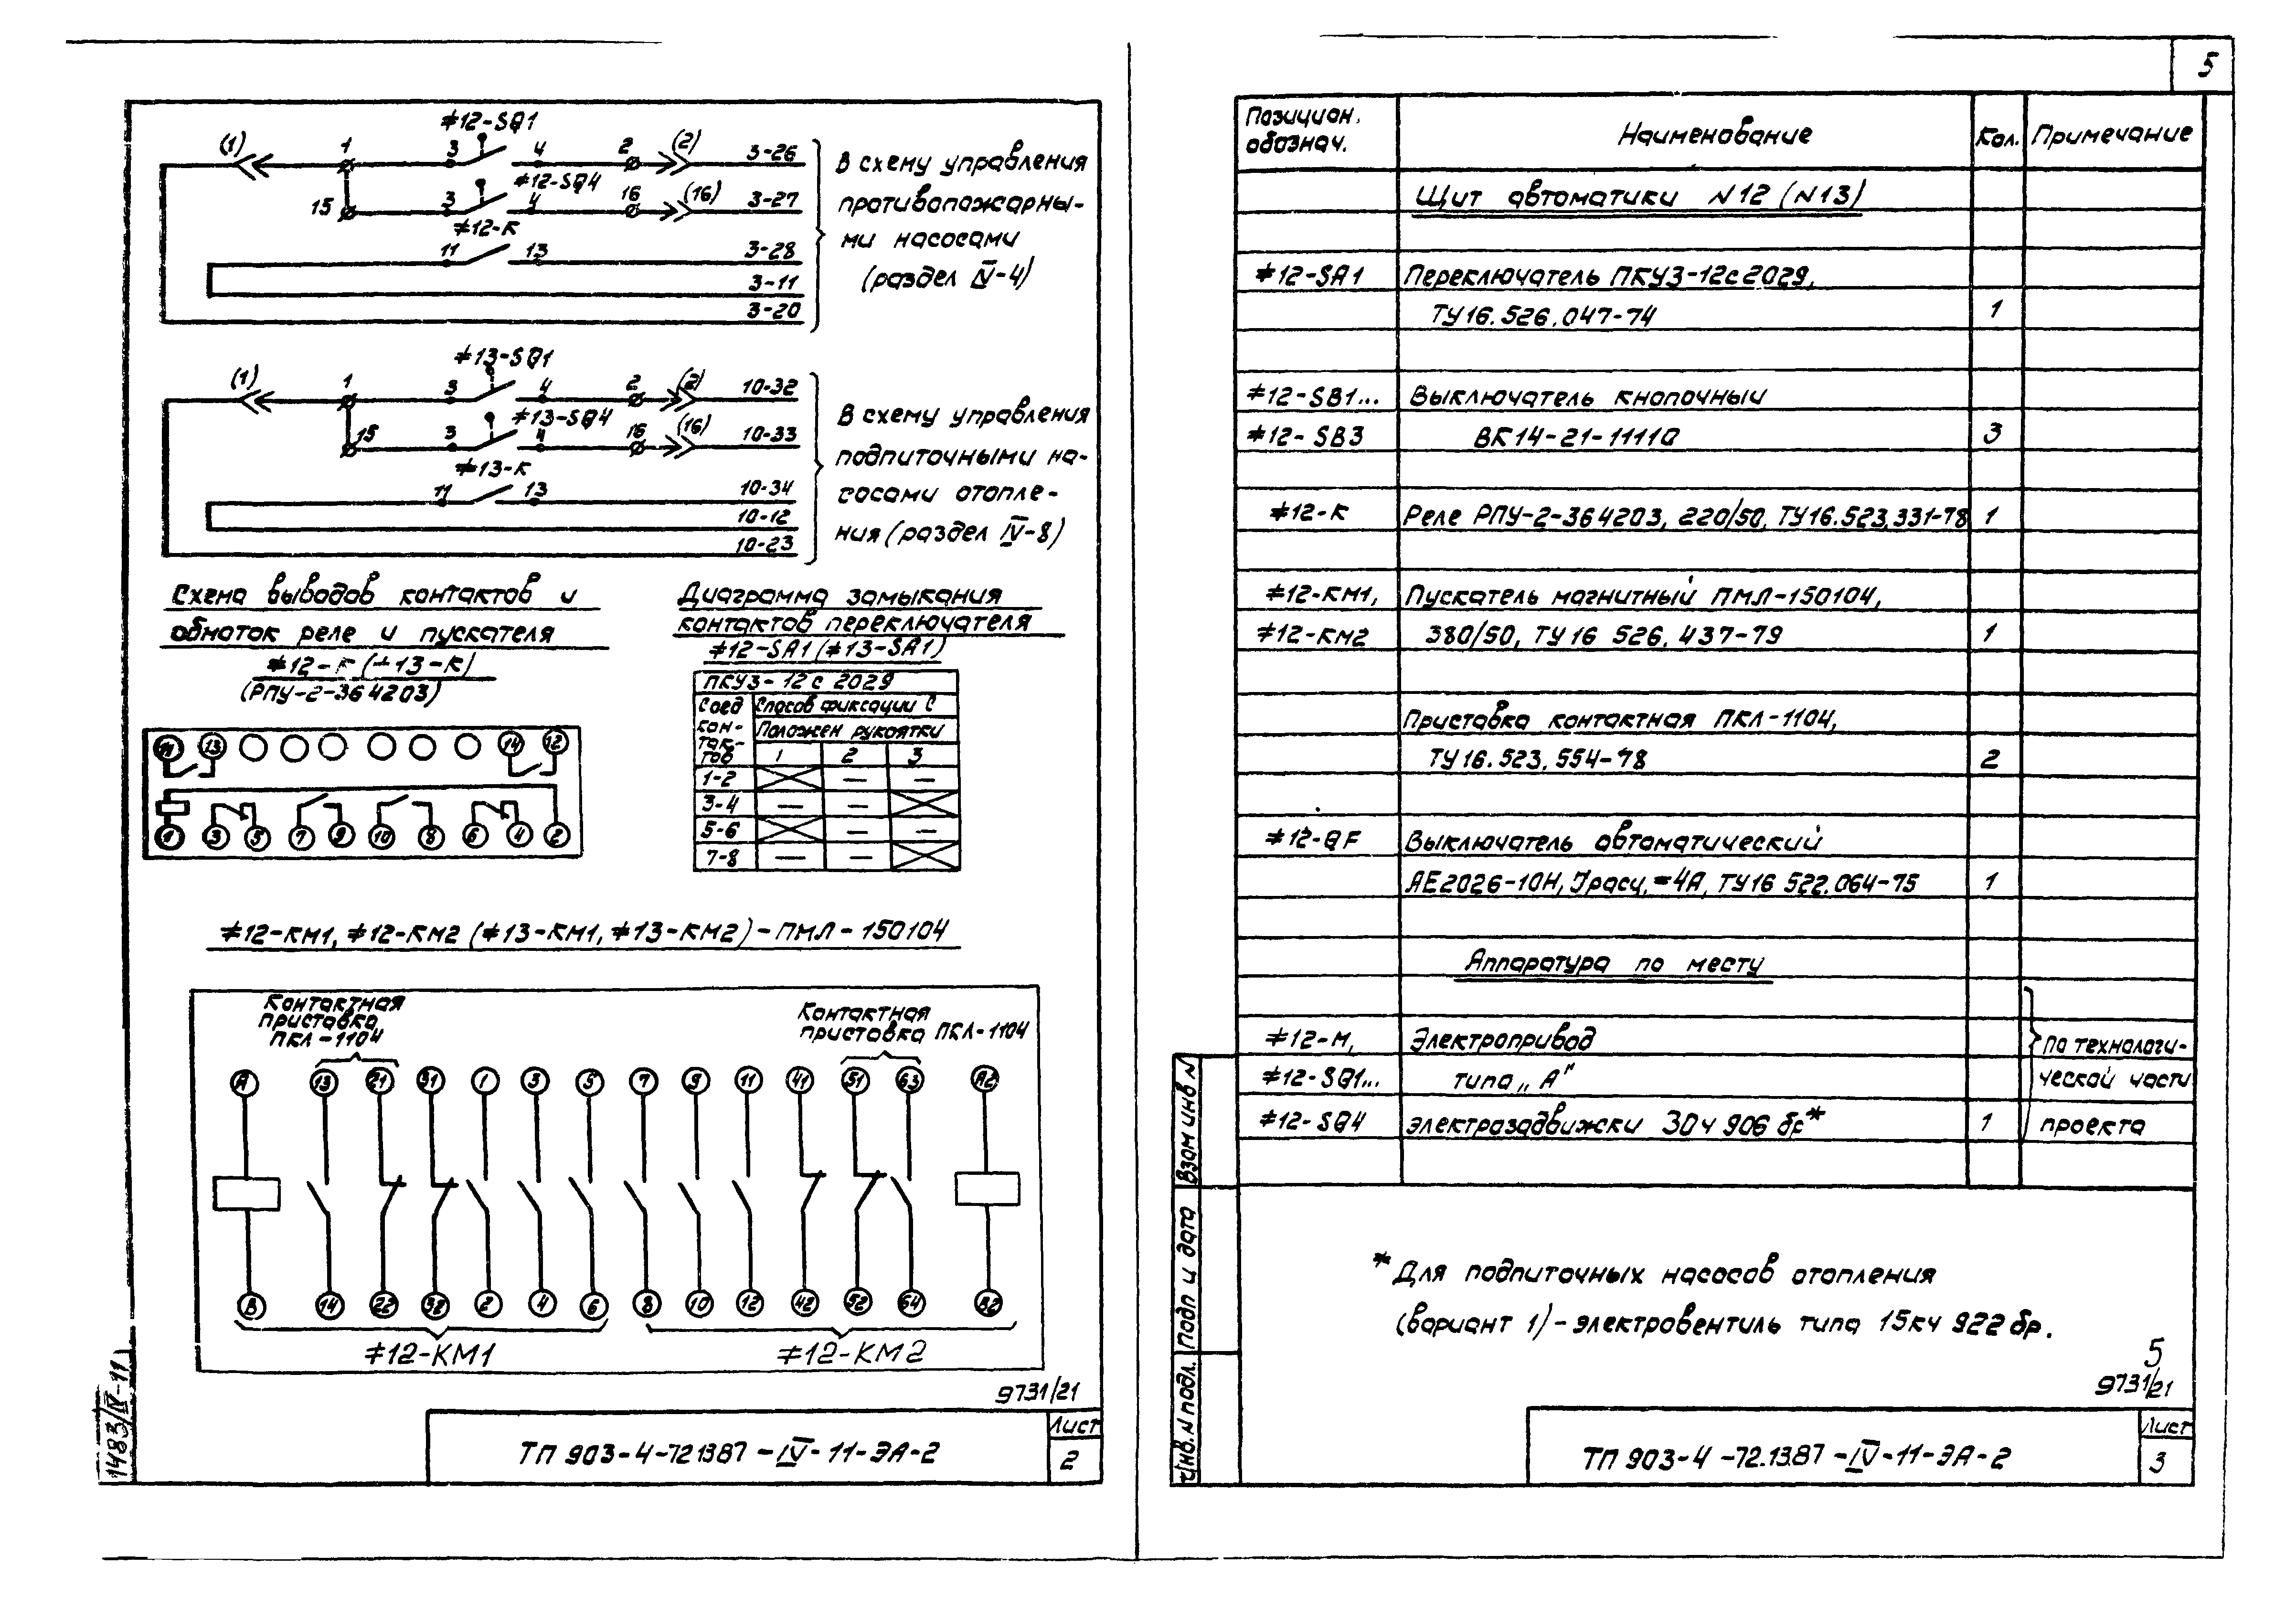 5
≠12-SQ1
(1) 1 3 4 2 (2) 3-26
≠12-SQ4
15 3 4 16 (16) 3-27
≠12-К
11 13 3-28
3-11
3-20
В схему управления
противопожарны-
ми насосами
(раздел IV-4)
≠13-SQ1
(1) 1 3 4 2 (2) 10-32
≠13-SQ4
15 3 4 16 (16) 10-33
≠13-К
11 13 10-34
10-12
10-23
В схему управления
подпиточными на-
сосами отопле-
ния (раздел IV-8)
Схема выводов контактов и
обмоток реле и пускателя
≠12-К (≠13-К)
(РПУ-2-364203)
11 13 14 12
1 3 5 7 9 10 8 6 4 2
Диаграмма замыкания
контактов переключателя
≠12-SA1 (≠13-SA1)
ПКУ3-12с 2029
Соед
кон-
так-
тов
Способ фиксации С
Положен рукоятки
1 2 3
1-2 — —
3-4 — —
5-6 — —
7-8 — —
≠12-КМ1, ≠12-КМ2 (≠13-КМ1, ≠13-КМ2) - ПМЛ-150104
Контактная
приставка
ПКЛ-1104
Контактная
приставка ПКЛ-1104
А 13 21 31 1 3 5 7 9 11 41 51 63 А2
В 14 22 32 2 4 6 8 10 12 42 52 64 В2
≠12-КМ1 ≠12-КМ2
9731/21
1483/IV-11
ТП 903-4-72 1387-IV-11-ЭА-2
Лист
2
Позицион.
обознач.
Наименование
Кол.
Примечание
Щит автоматики N12 (N13)
≠12-SA1 Переключатель ПКУ3-12с2029,
ТУ16.526.047-74 1
≠12-SB1... Выключатель кнопочный
≠12-SB3 ВК14-21-11110 3
≠12-К Реле РПУ-2-364203, 220/50, ТУ16.523.331-78 1
≠12-КМ1, Пускатель магнитный ПМЛ-150104,
≠12-КМ2 380/50, ТУ16 526.437-79 1
Приставка контактная ПКЛ-1104,
ТУ16.523.554-78 2
≠12-QF Выключатель автоматический
АЕ2026-10Н, Iрасц.=4А, ТУ16 522.064-75 1
Аппаратура по месту
≠12-М, Электропривод
≠12-SQ1... типа „А"
≠12-SQ4 электрозадвижски 30ч 906 бр* 1
по технологи-
ческой части
проекта
* Для подпиточных насосов отопления
(вариант 1) - электровентиль типа 15кч 922 бр.
5
9731/21
Взам инв N
Подп и дата
Инв. N подл.
ТП 903-4-72.1387-IV-11-ЭА-2
Лист
3